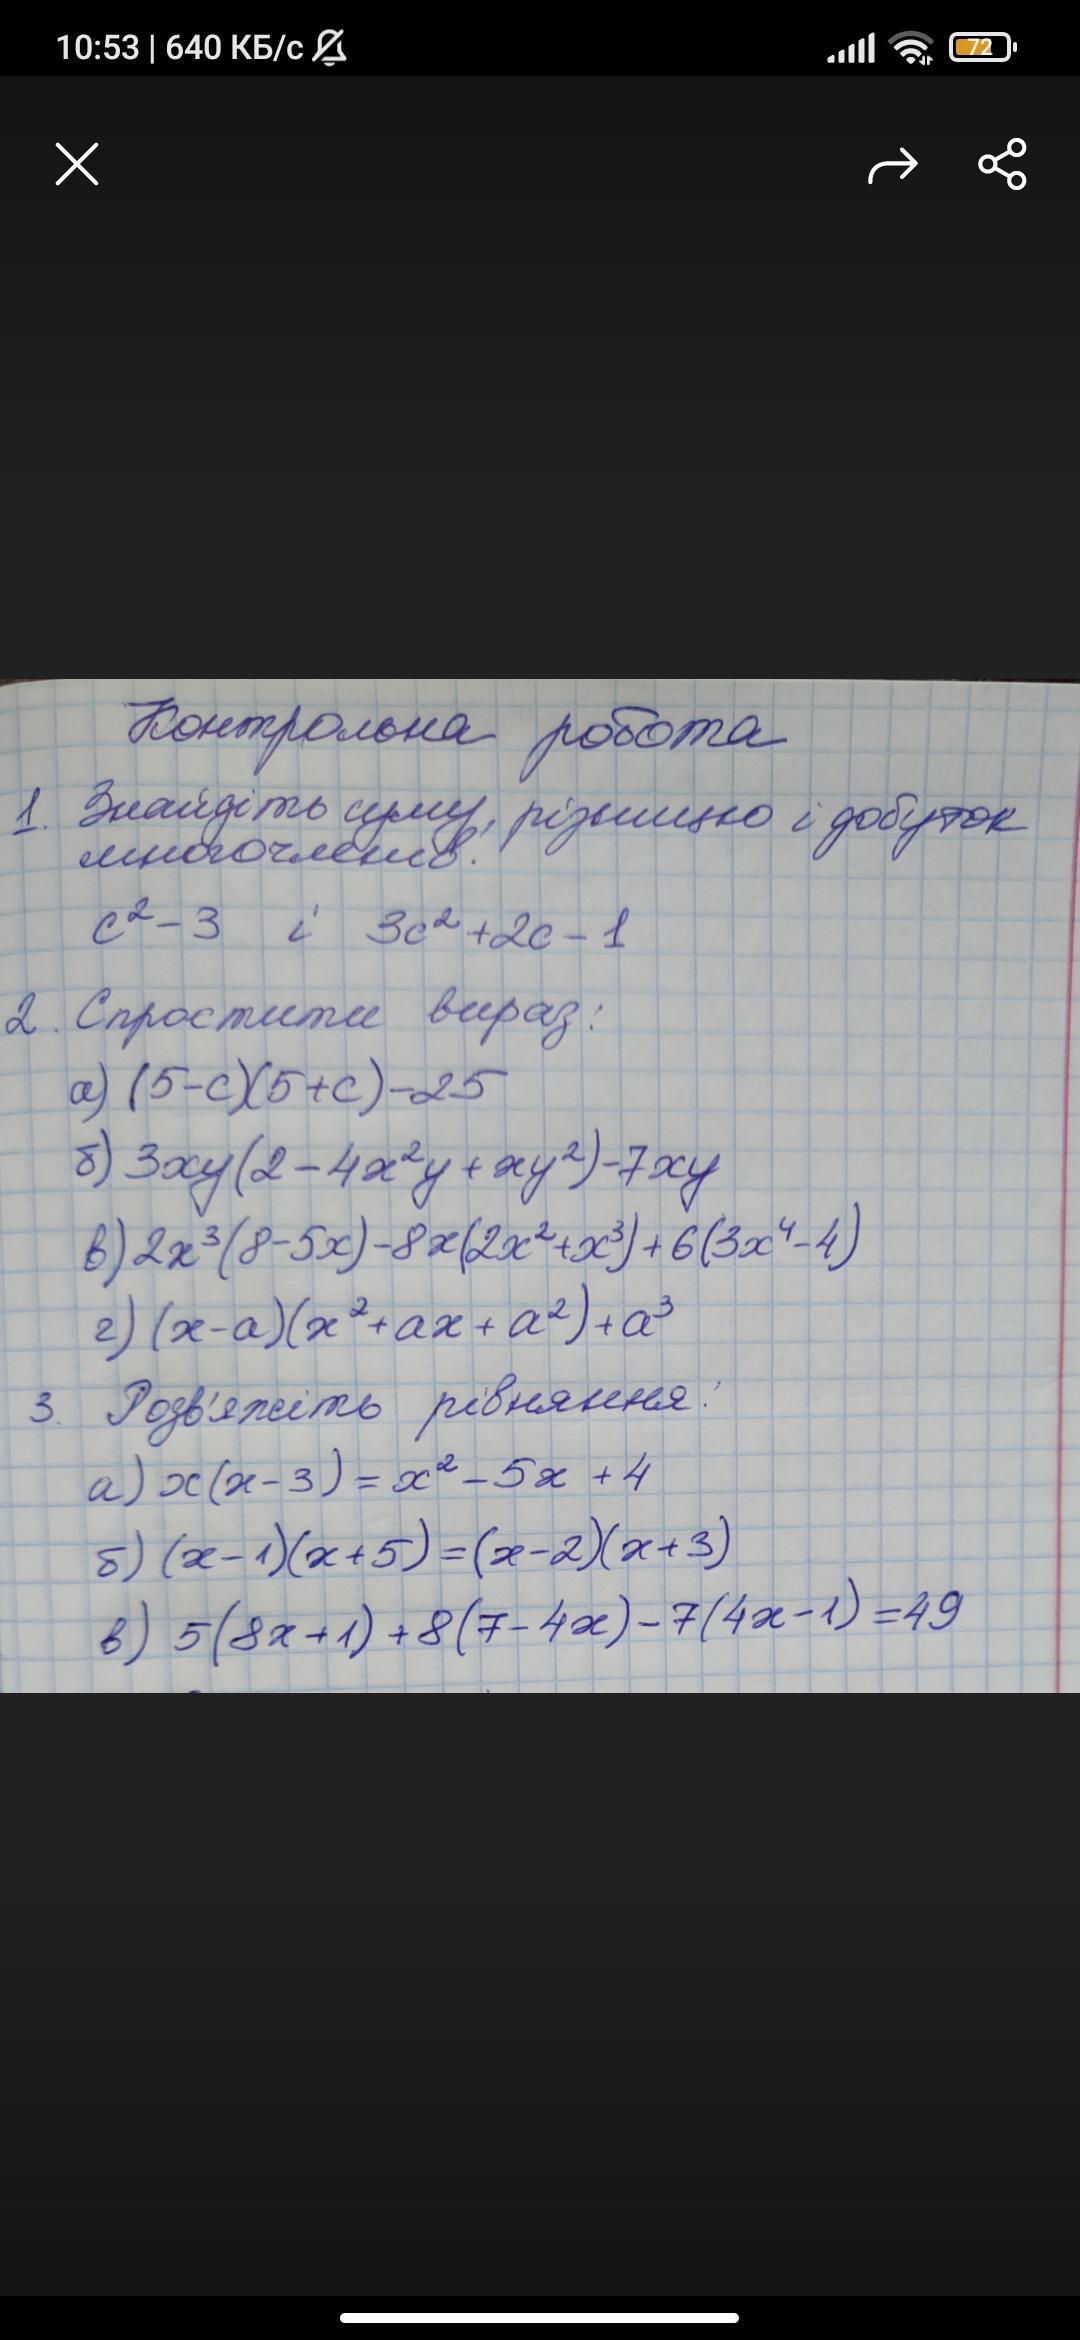 10:53 | 640 КБ/с
72
Контрольна робота
1. Знайдіть суму, різницю і добуток
многочленів:
c²-3 і 3c²+2c-1
2. Спростити вираз:
а) (5-c)(5+c)-25
б) 3xy(2-4x²y+xy²)-7xy
в) 2x³(8-5x)-8x(2x²+x³)+6(3x⁴-4)
г) (x-a)(x²+ax+a²)+a³
3. Розв'яжіть рівняння:
а) x(x-3)=x²-5x+4
б) (x-1)(x+5)=(x-2)(x+3)
в) 5(8x+1)+8(7-4x)-7(4x-1)=49